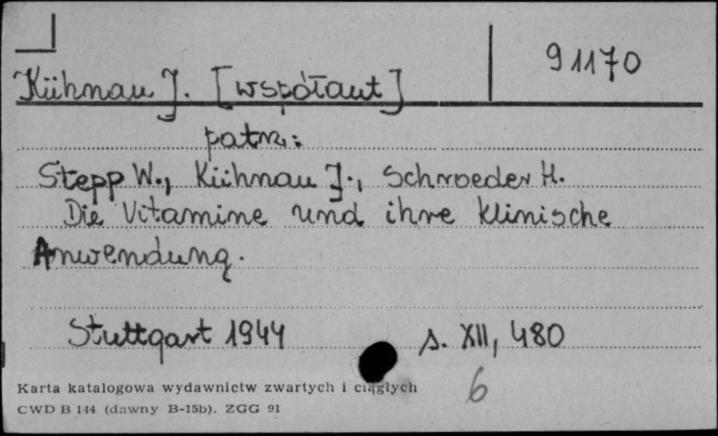 91170
Kühnau J. [współaut]
patrz:
Stepp W., Kühnau J., Schroeder H.
Die Vitamine und ihre klinische
Anwendung.
Stuttgart 1944 s. XII, 480
Karta katalogowa wydawnictw zwartych i ciągłych
6
CWD B 144 (dawny B-15b). ZGG 91